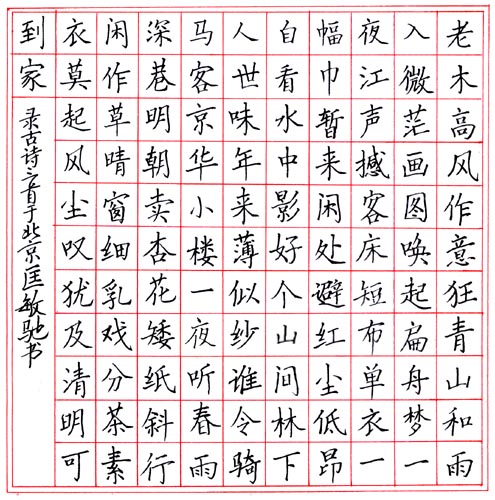 老木高风作意狂青山和雨
入微茫画图唤起扁舟梦一
夜江声撼客床短布单衣一
幅巾暂来闲处避红尘低昂
自看水中影好个山间林下
人世味年来薄似纱谁令骑
马客京华小楼一夜听春雨
深巷明朝卖杏花矮纸斜行
闲作草晴窗细乳戏分茶素
衣莫起风尘叹犹及清明可
到家
录古诗三首于北京匡敏驰书